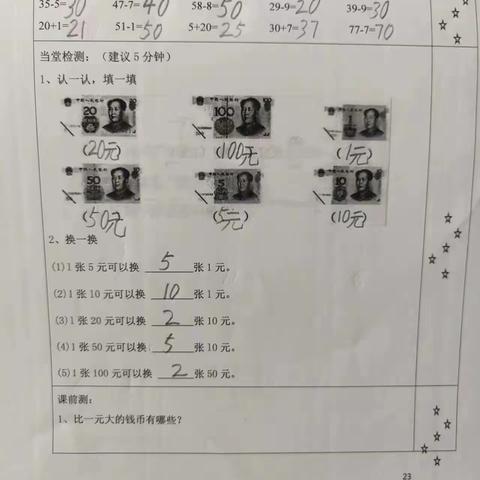 35-5=30 47-7=40 58-8=50 29-9=20 39-9=30
20+1=21 51-1=50 5+20=25 30+7=37 77-7=70
当堂检测：（建议 5 分钟）
1、认一认，填一填
20 100 1
(20元) (100元) (1元)
50 5 10
(50元) (5元) (10元)
2、换一换
(1)1 张 5 元可以换 5 张 1 元。
(2)1 张 10 元可以换 10 张 1 元。
(3)1 张 20 元可以换 2 张 10 元。
(4)1 张 50 元可以换 5 张 10 元。
(5)1 张 100 元可以换 2 张 50 元。
课前测：
1、比一元大的钱币有哪些？
23